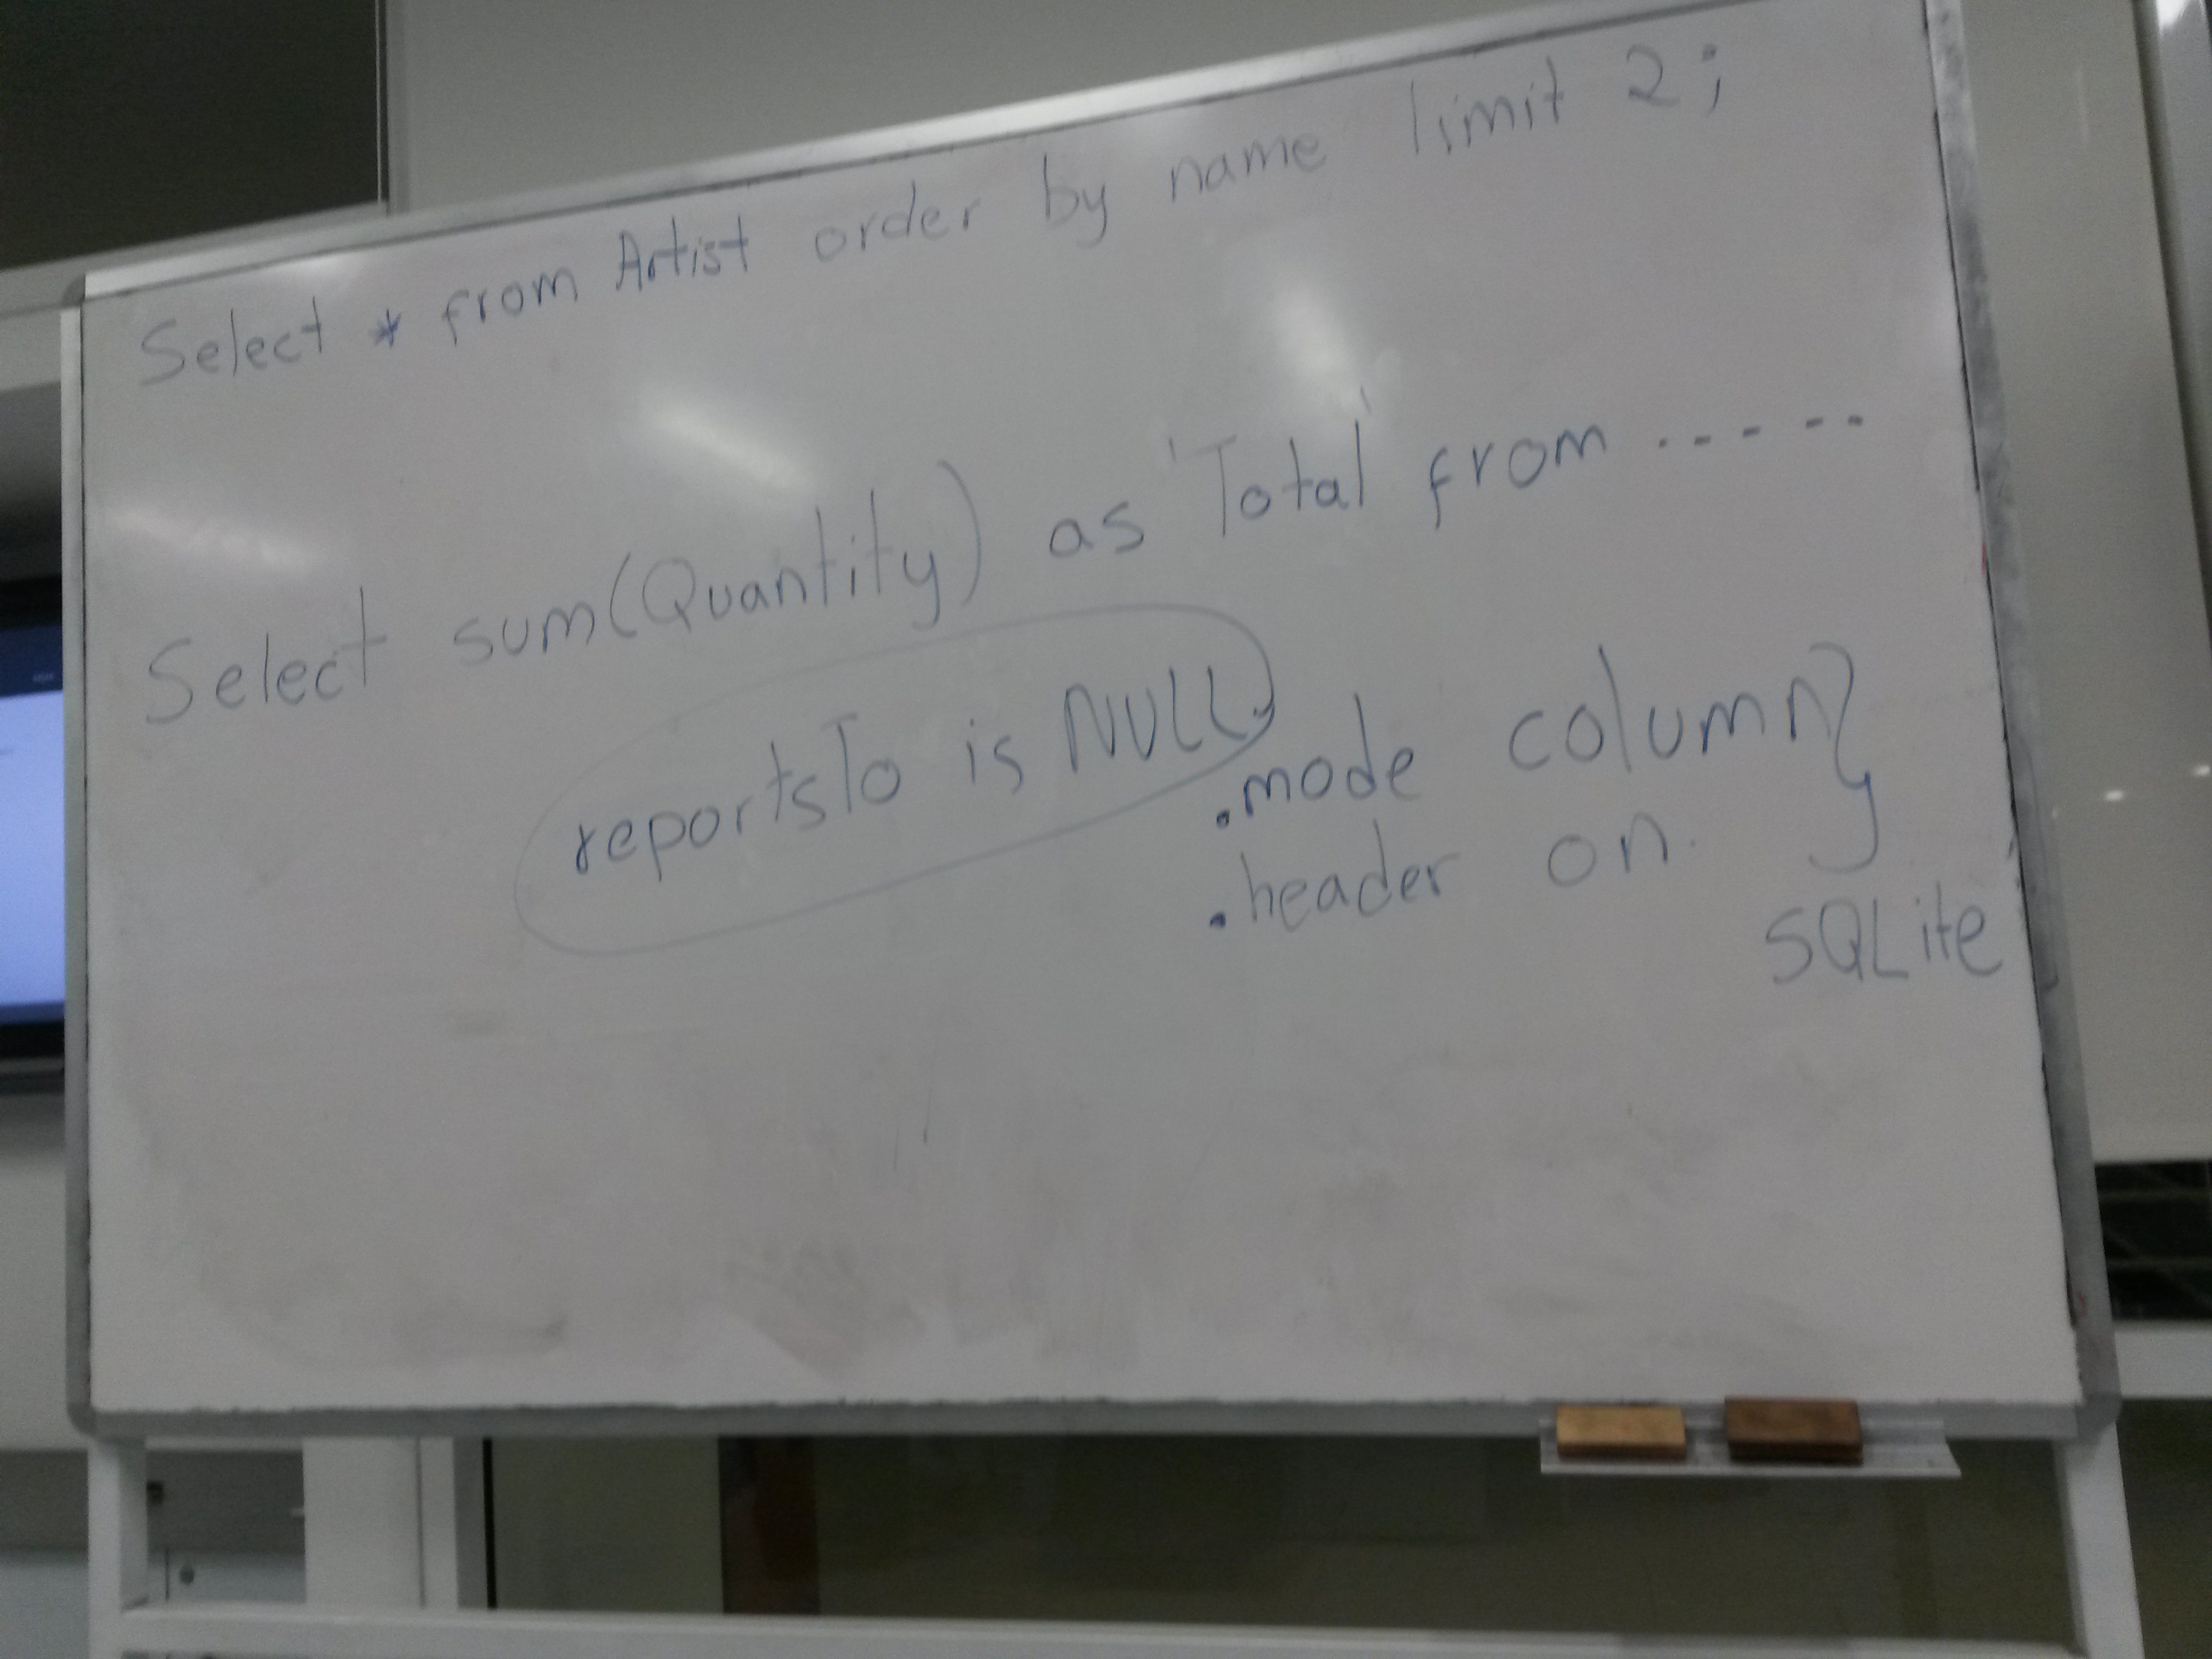 Select * from Artist order by name limit 2;
Select sum(Quantity) as 'Total' from - - - - -
reportsTo is NULL
.mode column }
.header on
SQLite